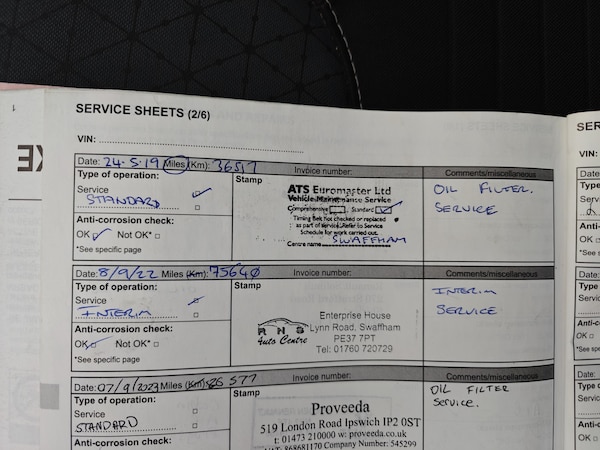 SERVICE SHEETS (2/6)
VIN:
Date: 24-5-19 Miles (Km): 36517 Invoice number: Comments/miscellaneous
Type of operation: Stamp
Service
STANDARD
ATS Euromaster Ltd
Vehicle Maintenance Service
Comprehensive Standard
Timing Belt not checked or replaced
as part of service. Refer to Service
Schedule for work carried out.
Centre name SWAFFHAM
OIL FILTER.
SERVICE
Anti-corrosion check:
OK Not OK*
*See specific page
Date: 8/9/22 Miles (Km): 75640 Invoice number: Comments/miscellaneous
Type of operation: Stamp
Service
INTERIM
RNS
Auto Centre
Enterprise House
Lynn Road, Swaffham
PE37 7PT
Tel: 01760 720729
INTERIM
SERVICE
Anti-corrosion check:
OK Not OK*
*See specific page
Date: 07/9/2023 Miles (Km): 577 Invoice number: Comments/miscellaneous
Type of operation: Stamp
Service
STANDARD
Proveeda
519 London Road Ipswich IP2 0ST
t: 01473 210000 w: proveeda.co.uk
VAT: 868681170 Company Number: 545299
OIL FILTER
SERVICE.
Anti-corrosion check:
SER
VIN:
Date:
Type
Servi
Anti-
OK
*See s
Date:
Type
Servi
Anti-
OK
*See
Date:
Type
Serv
Anti